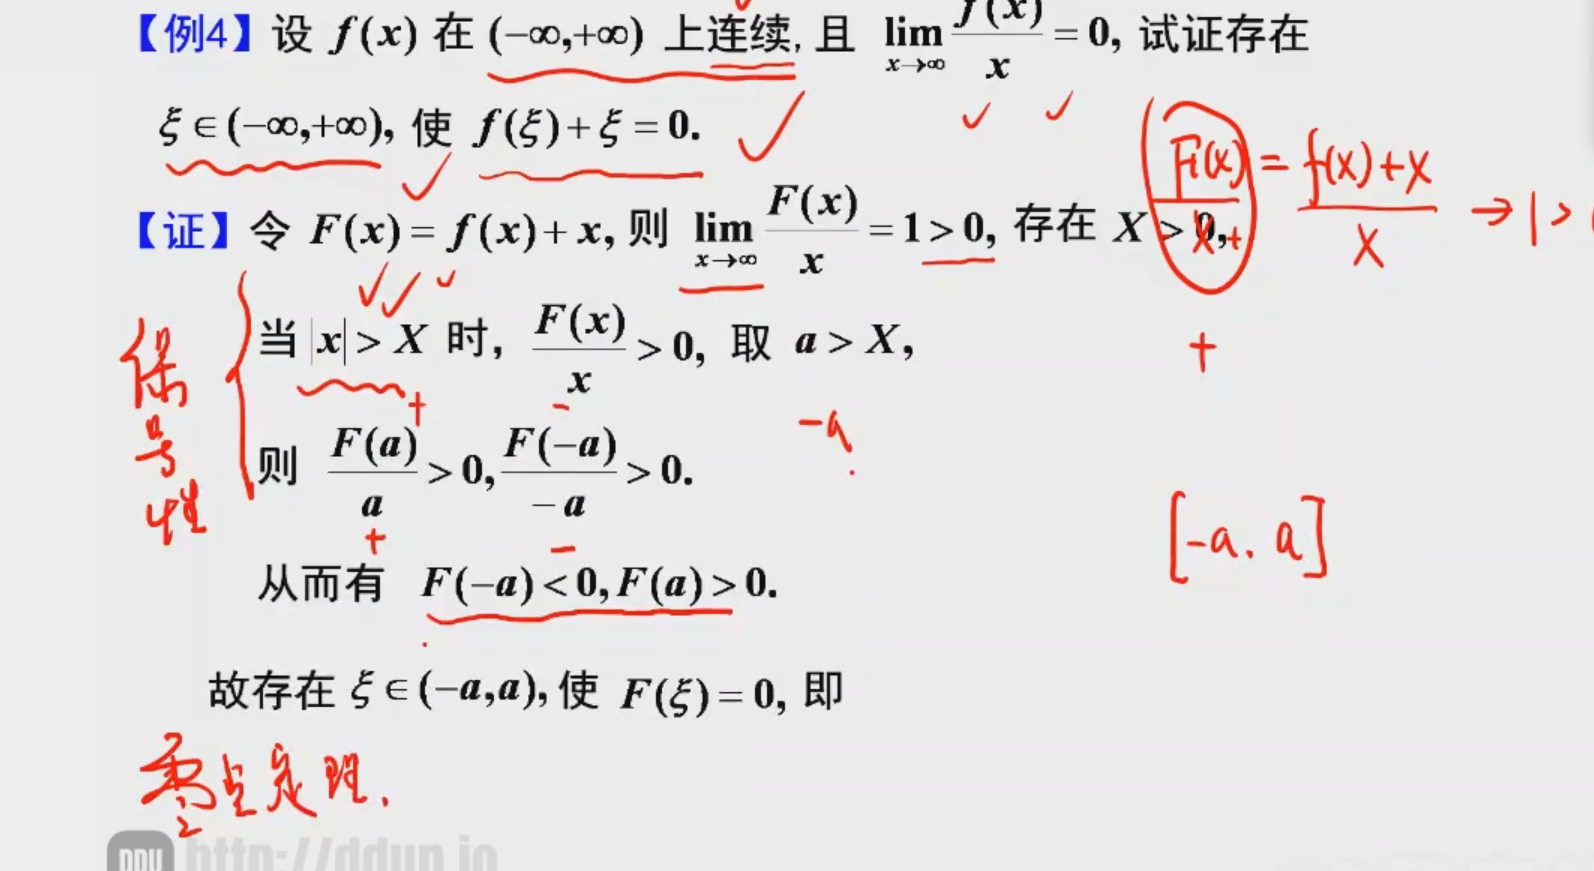 【例4】设 f(x) 在 (-∞,+∞) 上连续, 且 lim x→∞ f(x)/x = 0, 试证存在
ξ∈(-∞,+∞), 使 f(ξ)+ξ=0.
F(x)/x = f(x)+x/x → 1>
【证】令 F(x)=f(x)+x, 则 lim x→∞ F(x)/x =1>0, 存在 X>0,
+
当 |x|>X 时, F(x)/x >0, 取 a>X,
保号性
+ - -a
则 F(a)/a >0, F(-a)/-a >0.
+ -
[-a. a]
从而有 F(-a)<0, F(a)>0.
故存在 ξ∈(-a,a), 使 F(ξ)=0, 即
零点定理.
DDU http://ddup.io